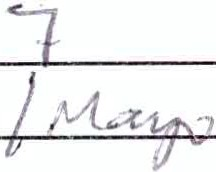 7
/ Mayo